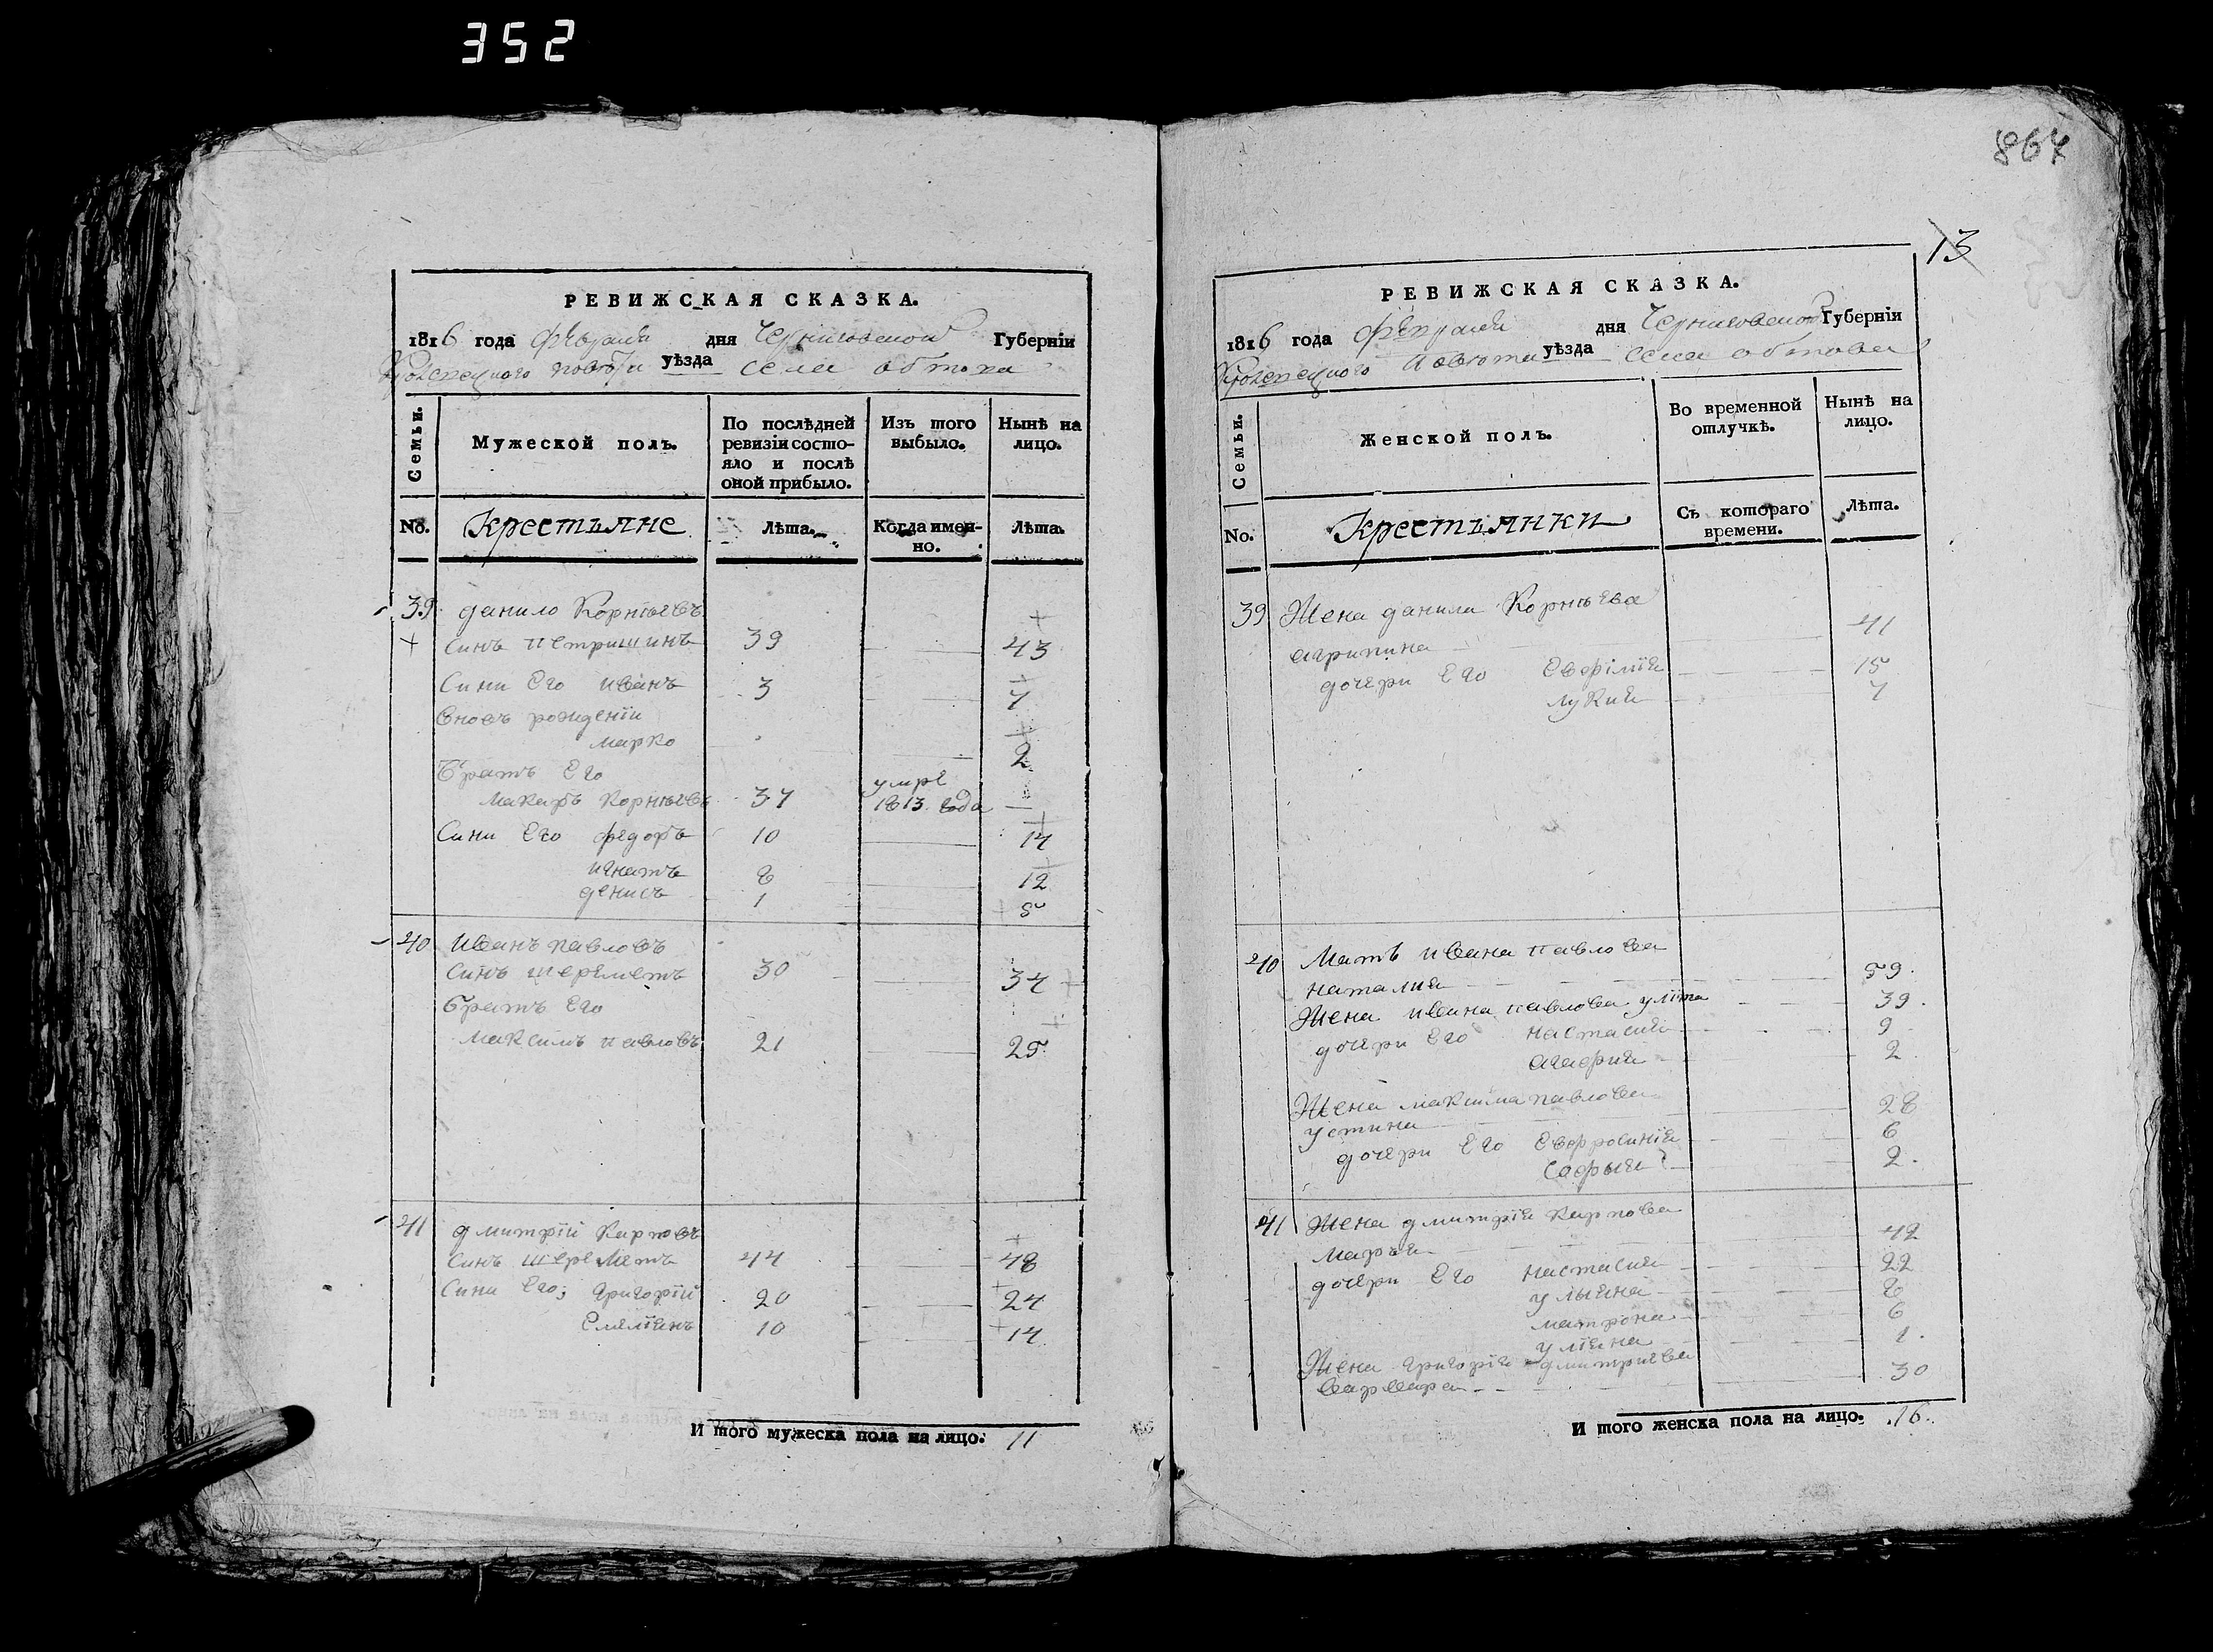 352
РЕВИЖСКАЯ СКАЗКА.
1816 года Февраля дня Черниговской Губернiи
Кролевецкого повѣта уѣзда села обтова
Семьи.
Мужеской полъ.
По послѣдней ревизiи состояло и послѣ оной прибыло.
Изъ того выбыло.
Нынѣ на лицо.
No.
Крестьяне
Лѣта.
Когда именно.
Лѣта.
39 данило Корнѣевъ
синъ петришинъ 39 — 43
Сини Его иванъ 3 — 7
вновь рожденiи
марко — 2
Братъ Его
макаръ Корнѣевъ 37 умре 1813 года —
Сини Его федоръ 10 — 14
игнатъ 8 — 12
денисъ 1 — 5
40 Иванъ павловъ
синъ шереметъ 30 — 34
братъ Его
максимъ павловъ 21 — 25
41 дмитрiй Карповъ
синъ шереметъ 44 48
Сини Его; григорiй 20 — 24
Емелiянъ 10 — 14
И того мужеска пола на лицо. 11
864
13
РЕВИЖСКАЯ СКАЗКА.
1816 года Февраля дня Черниговской Губернiи
Кролевецкого повѣта уѣзда села обтова
Семьи.
Женской полъ.
Во временной отлучкѣ.
Нынѣ на лицо.
No.
Крестьянки
Съ котораго времени.
Лѣта.
39 Жена данила Корнѣева
агрипина — 41
дочери Его Евфiмiя — 15
лукия — 7
40 Мать ивана павлова
наталия — 59.
Жена ивана павлова улита — 39.
дочери Его настасия — 9
агафия — 2
Жена максима павлова
устина — 28
дочери Его Евфросинiя — 6
софыя — 2.
41 Жена дмитрiя карпова
марья — 42
дочери Его настасия — 22
улыяна — 8
матрона — 6
улiяна — 1.
Жена григорiя дмитриева
варвара — 30
И того женска пола на лицо. 16.